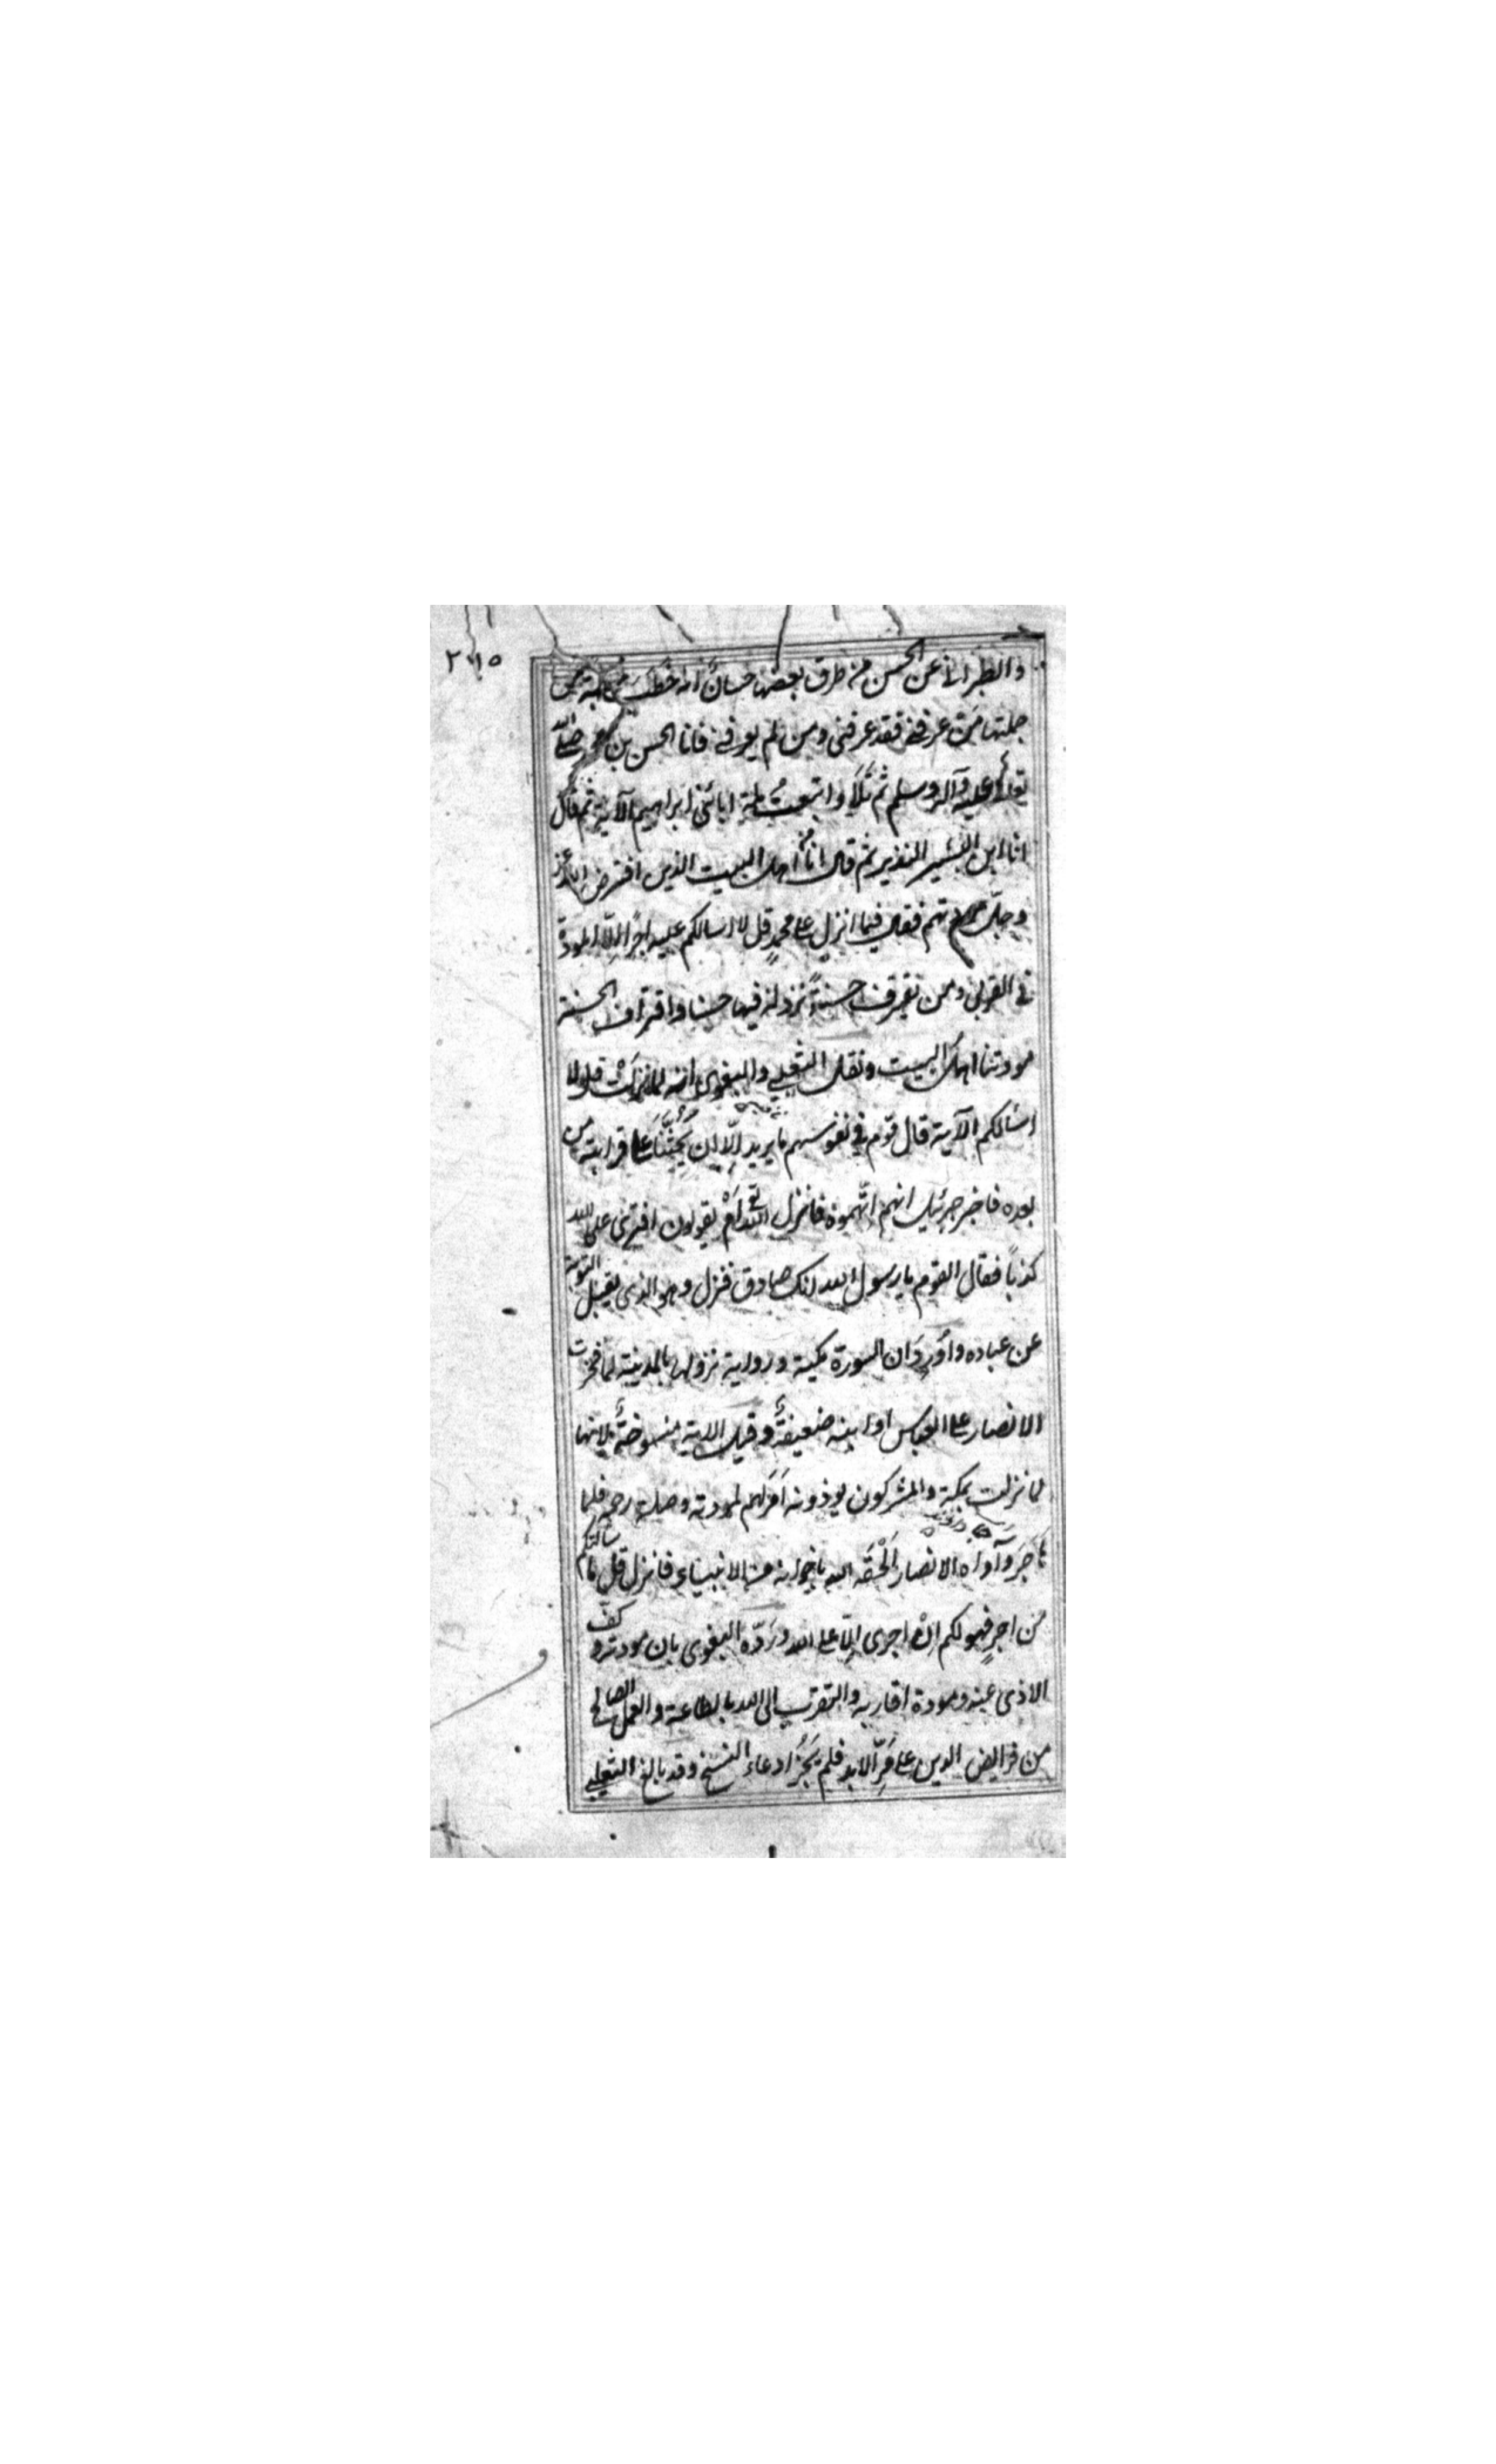 ٢١٥
والطبراني عن الحسن من طرق بعضها حسان انه خطب خطبة من
جملتها من عرفني فقد عرفني ومن لم يعرفني فانا الحسن بن محمد صلى الله
تعالى عليه وآله وسلم ثم تلا واتبعت ملة ابائي ابراهيم الآية ثم قال
انا ابن البشير المنذير ثم قال انا من اهل البيت الذين افترض الله عز
وجل مودتهم فقال فيما انزل على محمد قل لا اسالكم عليه اجرًا إلّا المودة
في القربى ومن يقترف حسنةً نزد له فيها حسنا واقتراف الحسنة
مودتنا اهل البيت ونقل الثعلبي والبغوي انه لما نزلت قل لا
اسالكم الآية قال قوم في نفوسهم ما يريد إلّا ان يحثنا على قرابته من
بعده فاخبر جبرئيل انهم اتهموه فانزل الله تع اَمْ يقولون افترى على الله
كذباً فقال القوم يا رسول الله انك صادق فنزل وهو الذي يقبل التوبة
عن عباده واُورِدَ ان السورة مكية ورواية نزولها بالمدينة لما فخرت
الانصار على العباس او ابنه ضعيفةٌ وقيل الاية منسوخةٌ لانها
لما نزلت بمكة والمشركون يوذونه اَمَرَهم لمودته وصلة رحمه فلما
هَاجَرَ وآواه الانصار اَلْحَقَه الله باخوانه من الانبياء فانزل قل ما سألتكم
من اجرٍ فهو لكم انْ اجرى إلّا على الله وردّه البغوى بان مودته وكف
الاذى عنه ومودة اقاربه والتقرب الى الله بالطاعة والعمل الصالح
من فرايض الدين على مَرِّ الابد فلم يَجُز ادعاء النسخ وقد بالغ الثعلبي